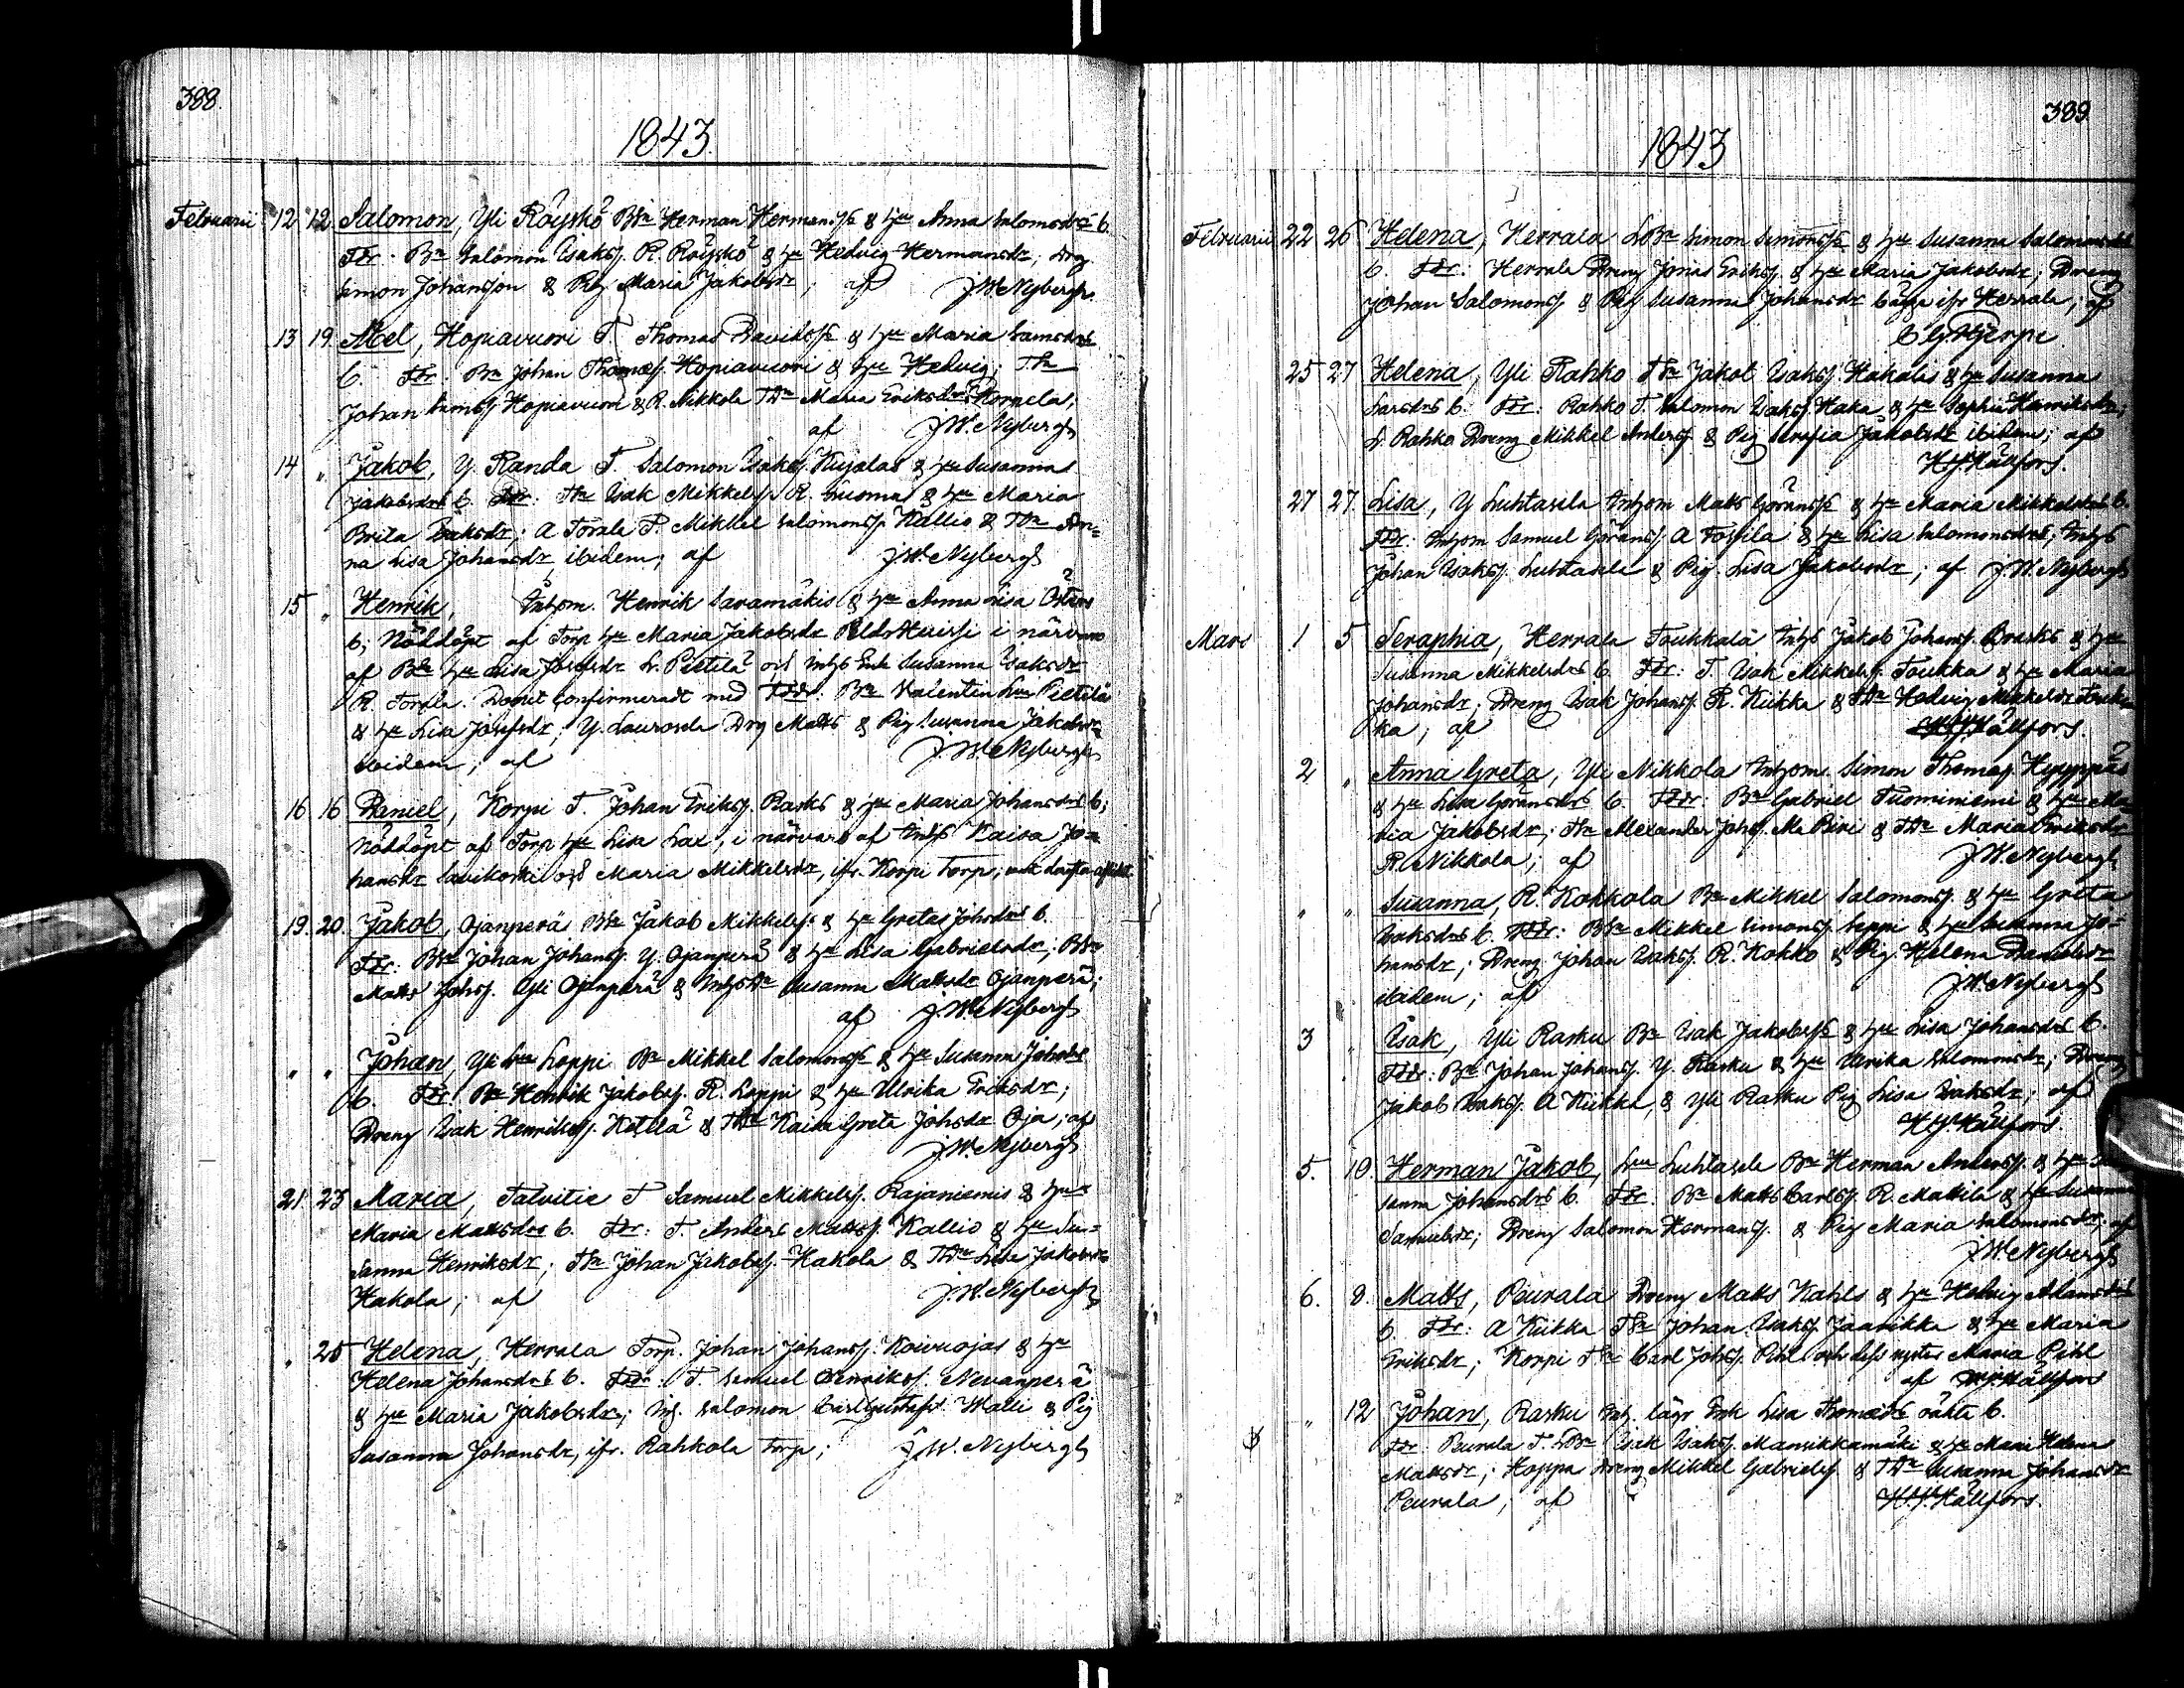 388.
1843.
Februarii 12 12. Salomon, Yli Röyskö Bsn Herman Hermansss & hu Anna Salomsdrs b.
Fdr. Bn Salomon Isakss. R. Röyskö & hu Hedvig Hermansdr; Drg.
Simon Johansson & Pig Maria Jakobsdr; af J.W. Nybergh.
13 19. Abel, Hopiavuori T. Thomas Davidsss & hu Maria Samsdrs
b. Fdr. Bn Johan Thomæss. Hopiavuori & hu Hedvig; Tsn
Johan Samss. Hopiavuori & R. Nikkola TDr Maria Eriksdr Korpela;
af J.W. Nybergh
14 " Jakob, Y. Randa T. Salomon Isakss. Kujalas & hu Susanna
Jakobsdrs b. Fdr: Tsn Isak Mikkelss. R. Luoma & hu Maria
Brita Isaksdr; A Torala T. Mikkel Salomonss. Kallio & TDr An=
na Lisa Johansdr, ibidem; af J.W. Nybergh
15 " Henrik, Inhysn. Henrik Saramäkis & hu Anna Lisa
b; Nöddöpt af Torp hu Maria Jakobsdr i närvaro
af Bde hu Lisa Josefsdr L. Pietilä och Inhys Enk Susanna Isaksdr
R. Torala. Dopet Confirmeradt med Fddr: Bn Valentin Pietilä
& hu Lisa Josefsdr; Y. Laurosela Drg Matts & Pig Susanna Jakobsdr
ibidem; af J.W. Nybergh
16 16 Daniel, Korpi T. Johan Erikss. Rasks & hu Maria Johansdrs b;
Nöddöpt af Torp hu Lisa Lax, i närvaro af Inhys Kaisa Jo=
hansdr Savikoski och Maria Mikkelsdr, ifr. Korpi Torp;
19. 20. Jakob, Ojanperä Bsn Jakob Mikkelss. & hu Gretas Johsdrs b.
Fdr: Bsn Johan Johanss. Y. Ojanperä & hu Lisa Gabrielsdr; Bsn
Matts Johss. Yli Ojanperä & Inhys Dr Susanna Mattsdr Ojanperä;
af J.W. Nybergh
" " Johan, Yli Loppi Bn Mikkel Salomonss & hu Susanna Johsdrs
b. Fdr Bn Henrik Jakobss. R. Loppi & hu Ulrika Eriksdr;
Dreng Isak Henrikss. Ketola & TDr Kaisa Greta Johsdr Oja; af
J.W. Nybergh
21 23 Maria, Talvitie T Samuel Mikkelss. Rajaniemis & hu
Maria Mattsdrs b. Fdr: T. Anders Mattss. Kallio & hu Su=
sanna Henriksdr; Tsn Johan Jakobss. Hakola & TDr Lisa Jakobsdr
Hakola; af J.W. Nybergh
" 25 Helena, Herrala Torp. Johan Johanss. Koivuojas & hu
Helena Johansdrs b. Fddr. T. Samuel Henrikss. Nevanperä
& hu Maria Jakobsdr; Inh. Salomon Carl Gustafss. Walli & Pig
Susanna Johansdr, ifr. Rahkola Torp; J.W. Nybergh
389
1843
Februarii 22 26 Helena, Herrala LBn Simon Simonsss & hu Susanna Salomonsdrs
b. Fdr: Herrala Dreng Jonas Erikss. & hu Maria Jakobsdr; Dreng
Johan Salomonss & Pig Susanna Johansdr bägge ifr Herrala; af
25 27 Helena, Yli Rahko Tsn Jakob Isakss. Hakalis & hu Susanna
b. Fdr: Rahko T. Salomon Isakss. Haka & hu Sophia Henriksdr;
L. Rahko Dreng Mikkel Anderss. & Pig Serafia Jakobsdr ibidem; af
H.J. Hällfors.
27 27. Lisa, Y Luhtasela Inhysn Matts Göransss & hu Maria Mikkelsdrs b.
Fddr. Inhysn Samuel Göranss. A Tossila & hu Lisa Salomonsdr; Inhys
Johan Isakss. Luhtasela & Pig. Lisa Jakobsdr; af J.W. Nybergh
Mars 1 5 Seraphia, Herrala Toukkala Inhys Jakob Johanss. Brasks & hu
Susanna Mikkelsdrs b. Fdr: T. Isak Mikkelss. Toukka & hu Maria
Johansdr; Dreng Isak Johanss. R. Kiikka & TDr Hedvig Mikkelsdr Touk=
ka; af H.J. Hällfors.
2 " Anna Greta, Yli Nikkola Inhysn. Simon Thomass. Hyyppäs
& hu Lisa Göransdrs b. Fddr: Bn Gabriel Tuominiemi & hu Ma=
ria Jakobsdr; Tsn Alexander Johss. & TDr Maria Eriksdr
R. Nikkola; af J.W. Nybergh
" " Susanna, R. Kokkola Bn Mikkel Salomonss. & hu Greta
Isaksdrs b. Fddr: Bsn Mikkel Simonss. Seppi & hu Susanna Jo=
hansdr; Dreng Johan Isakss. R. Kokko & Pig. Helena Danielsdr
ibidem; af J.W. Nybergh
3 " Isak, Yli Rasku Bn Isak Jakobsss & hu Lisa Johansdrs b.
Fddr: Bn Johan Johanss. Y. Rasku & hu Ulrika Salomonsdr; Dreng
Jakob Isakss. A Kiikka, & Yli Rasku Pig Lisa Isaksdr; af
H.J. Hällfors.
5. 10. Herman Jakob, Luhtasela Bn Herman Anderss. & hu Su=
sanna Johansdrs b. Fdr. Bn Matts Carlss. R. Mattila & hu Susanna
Samuelsdr; Dreng Salomon Hermanss. & Pig Maria Salomonsdr; af
J.W. Nybergh
6. 8. Matts, Peurala Dreng Matts Kahls & hu Hedvig Adamsdrs
b. Fdr: A Kiikka Tsn Johan Isakss. Jaarikka & hu Maria
Eriksdr; Korpi Tsn Carl Johss. Pihl och dess syster Maria Pihl
af H.J. Hällfors
" 12 Johan, Rasku Inh. lägr Enk Lisa Thomædrs oäkta b.
Fdr. Peurala T. Isak Isakss. Mansikkamäki & hu Maria Helena
Mattsdr; Hoppa Dreng Mikkel Gabrielss & TDr Susanna Johansdr
Peurala; af H.J. Hällfors.